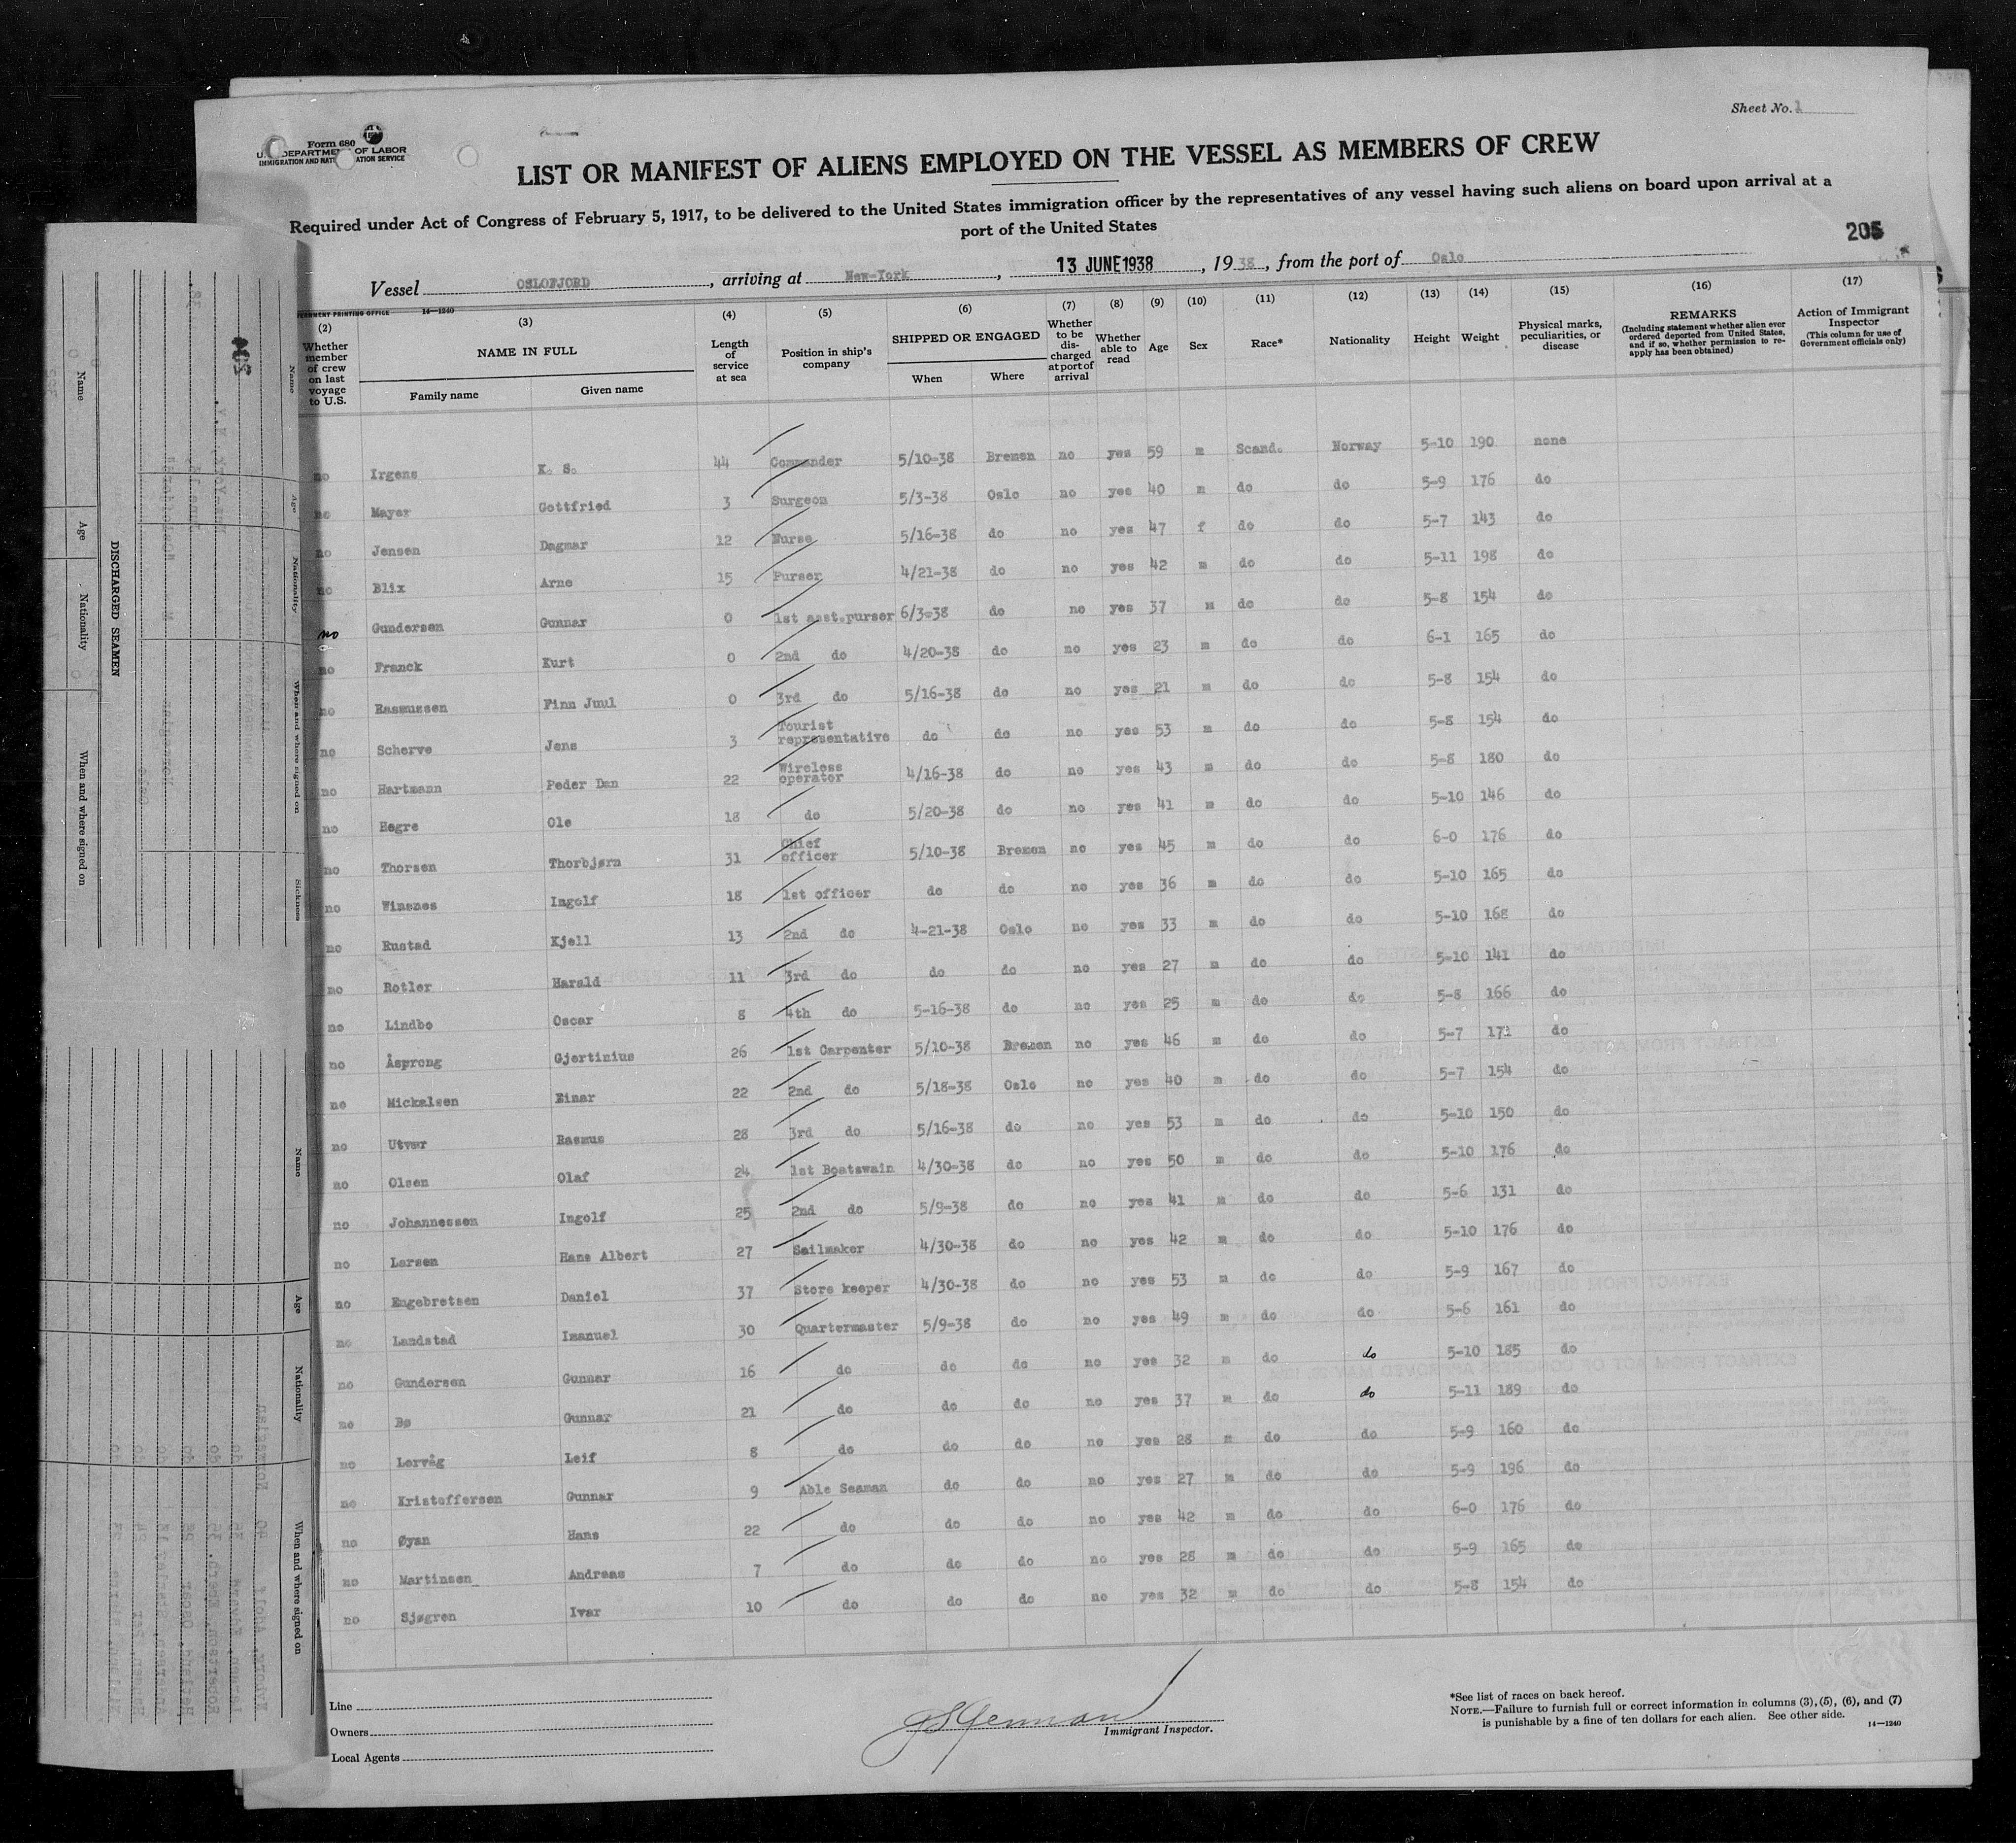 Sheet No. 1
Form 680
U. S. DEPARTMENT OF LABOR
IMMIGRATION AND NATURALIZATION SERVICE
LIST OR MANIFEST OF ALIENS EMPLOYED ON THE VESSEL AS MEMBERS OF CREW
Required under Act of Congress of February 5, 1917, to be delivered to the United States immigration officer by the representatives of any vessel having such aliens on board upon arrival at a
port of the United States
205
Vessel OSLOFJORD, arriving at New-York, 13 JUNE 1938, 1938, from the port of Oslo
14—1240
(2) (3) (4) (5) (6) (7) (8) (9) (10) (11) (12) (13) (14) (15) (16) (17)
Whether member of crew on last voyage to U.S. NAME IN FULL Family name Given name Length of service at sea Position in ship's company SHIPPED OR ENGAGED When Where Whether to be discharged at port of arrival Whether able to read Age Sex Race* Nationality Height Weight Physical marks, peculiarities, or disease REMARKS (Including statement whether alien ever ordered deported from United States, and if so, whether permission to reapply has been obtained) Action of Immigrant Inspector (This column for use of Government officials only)
no Irgens K. S. 44 Commander 5/10-38 Bremen no yes 59 m Scand. Norway 5-10 190 none
no Mayer Gottfried 3 Surgeon 5/3-38 Oslo no yes 40 m do do 5-9 176 do
no Jensen Dagmar 12 Nurse 5/16-38 do no yes 47 f do do 5-7 143 do
no Blix Arne 15 Purser 4/21-38 do no yes 42 m do do 5-11 198 do
no Gundersen Gunnar 0 1st asst.purser 6/3-38 do no yes 37 m do do 5-8 154 do
no Franck Kurt 0 2nd do 4/20-38 do no yes 23 m do do 6-1 165 do
no Rasmussen Finn Juul 0 3rd do 5/16-38 do no yes 21 m do do 5-8 154 do
no Scherve Jens 3 Tourist representative do do no yes 53 m do do 5-8 154 do
no Hartmann Peder Dan 22 Wireless operator 4/16-38 do no yes 43 m do do 5-8 180 do
no Hegre Ole 18 do 5/20-38 do no yes 41 m do do 5-10 146 do
no Thorsen Thorbjørn 31 Chief officer 5/10-38 Bremen no yes 45 m do do 6-0 176 do
no Winsnes Ingolf 18 1st officer do do no yes 36 m do do 5-10 165 do
no Rustad Kjell 13 2nd do 4-21-38 Oslo no yes 33 m do do 5-10 168 do
no Rotler Harald 11 3rd do do do no yes 27 m do do 5-10 141 do
no Lindbo Oscar 8 4th do 5-16-38 do no yes 25 m do do 5-8 166 do
no Åsprong Gjertinius 26 1st Carpenter 5/10-38 Bremen no yes 46 m do do 5-7 171 do
no Mickalsen Einar 22 2nd do 5/18-38 Oslo no yes 40 m do do 5-7 154 do
no Utvær Rasmus 28 3rd do 5/16-38 do no yes 53 m do do 5-10 150 do
no Olsen Olaf 24 1st Boatswain 4/30-38 do no yes 50 m do do 5-10 176 do
no Johannessen Ingolf 25 2nd do 5/9-38 do no yes 41 m do do 5-6 131 do
no Larsen Hans Albert 27 Sailmaker 4/30-38 do no yes 42 m do do 5-10 176 do
no Engebretsen Daniel 37 Store keeper 4/30-38 do no yes 53 m do do 5-9 167 do
no Landstad Imanuel 30 Quartermaster 5/9-38 do no yes 49 m do do 5-6 161 do
no Gundersen Gunnar 16 do do do no yes 32 m do do 5-10 185 do
no Bø Gunnar 21 do do do no yes 37 m do do 5-11 189 do
no Lervåg Leif 8 do do do no yes 28 m do do 5-9 160 do
no Kristoffersen Gunnar 9 Able Seaman do do no yes 27 m do do 5-9 196 do
no Øyan Hans 22 do do do no yes 42 m do do 6-0 176 do
no Martinsen Andreas 7 do do do no yes 28 m do do 5-9 165 do
no Sjøgren Ivar 10 do do do no yes 32 m do do 5-8 154 do
Line
Owners
Local Agents
Immigrant Inspector.
*See list of races on back hereof.
NOTE.—Failure to furnish full or correct information in columns (3), (5), (6), and (7)
is punishable by a fine of ten dollars for each alien. See other side.
14—1240
DISCHARGED SEAMEN
Name Age Nationality When and where signed on
Name Age Nationality When and where signed on Sickness
Name Age Nationality When and where signed on